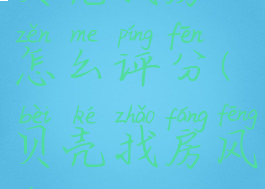 zěn me píng fēn
怎么评分(
bèi ké zhǎo fáng fēng
贝壳找房风